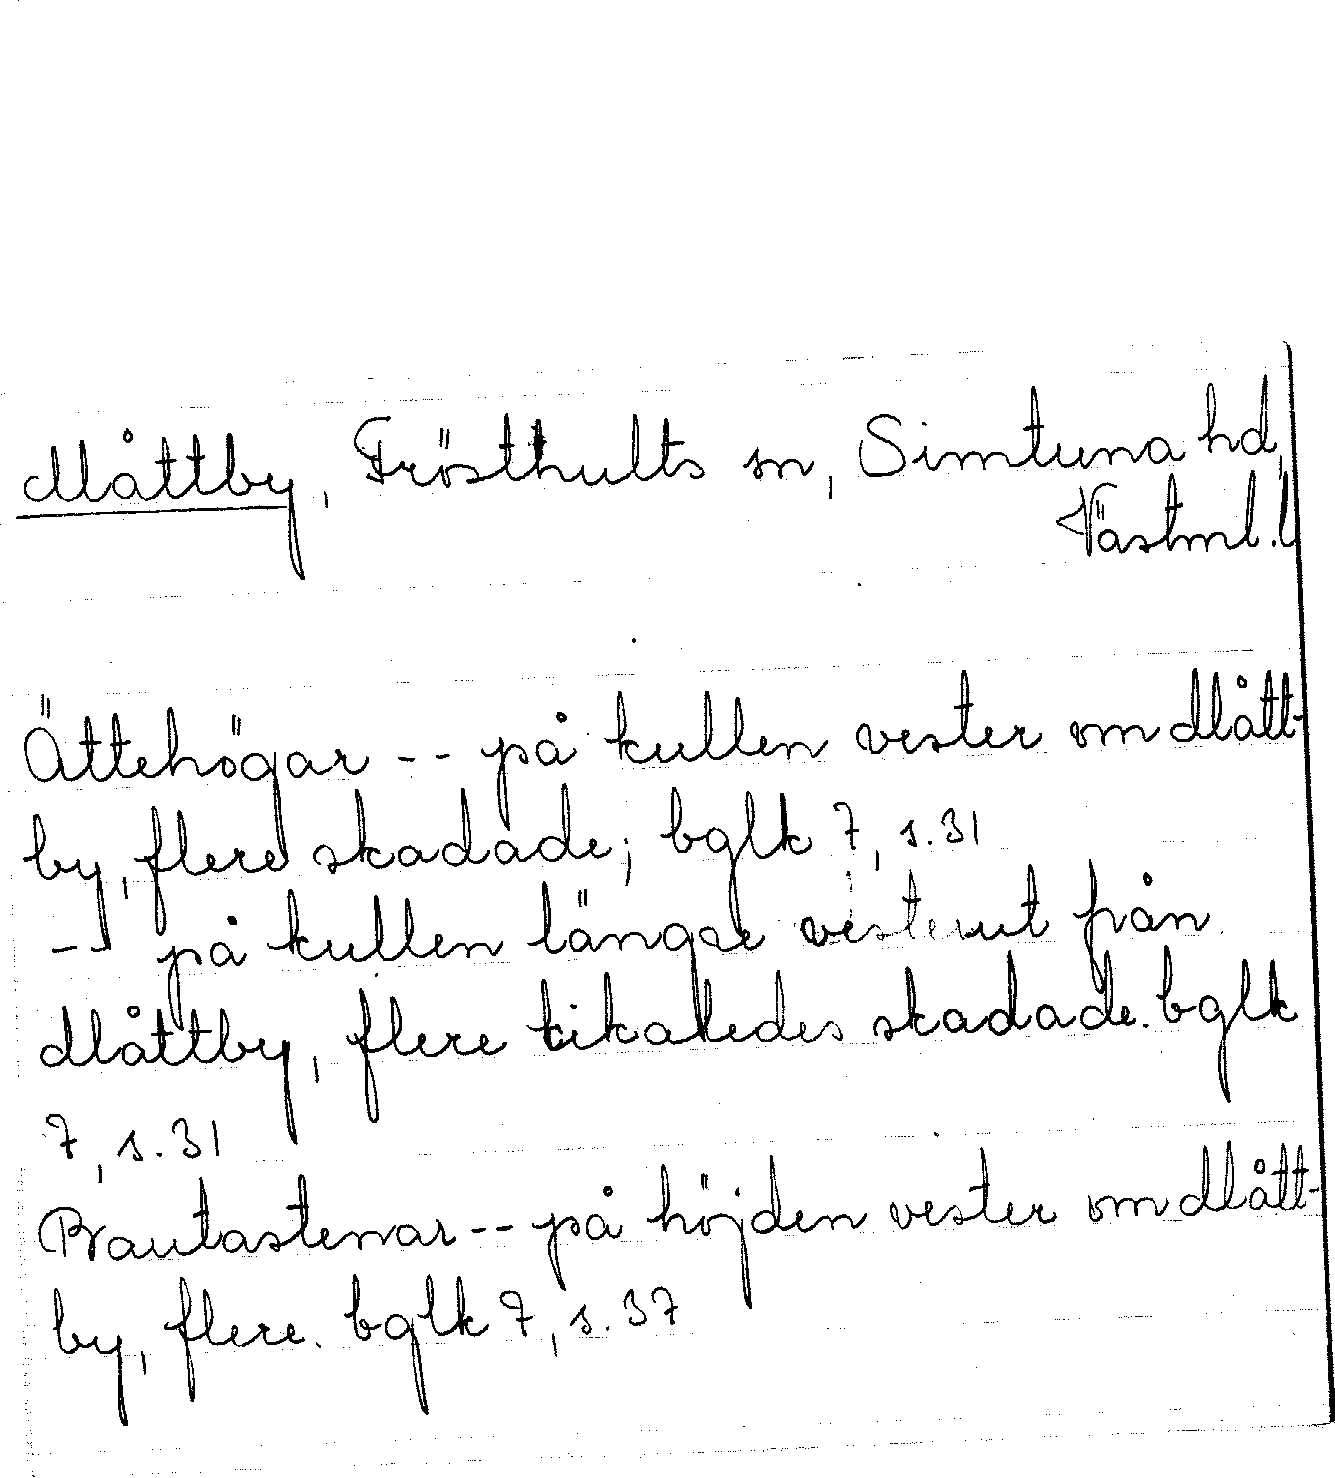 Måttby, Frösthults sn, Simtuna hd,
Västml. l
Ättehögar -- på kullen vester om Mått-
by, flere skadade; bglk 7, s. 31
-- på kullen längre vesterut från
Måttby, flere likaledes skadade. bglk
7, s. 31
Bautastenar -- på höjden vester om Mått-
by, flere. bglk 7, s. 37